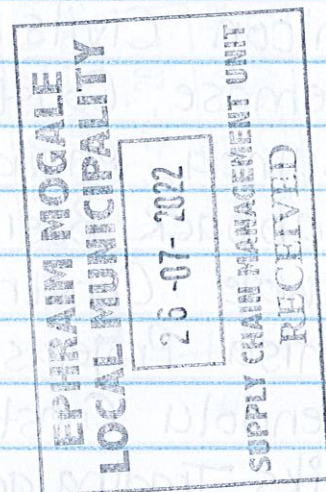 EPHRAIM MOGALE
LOCAL MUNICIPALITY
26-07-2022
SUPPLY CHAIN MANAGEMENT UNIT
RECEIVED